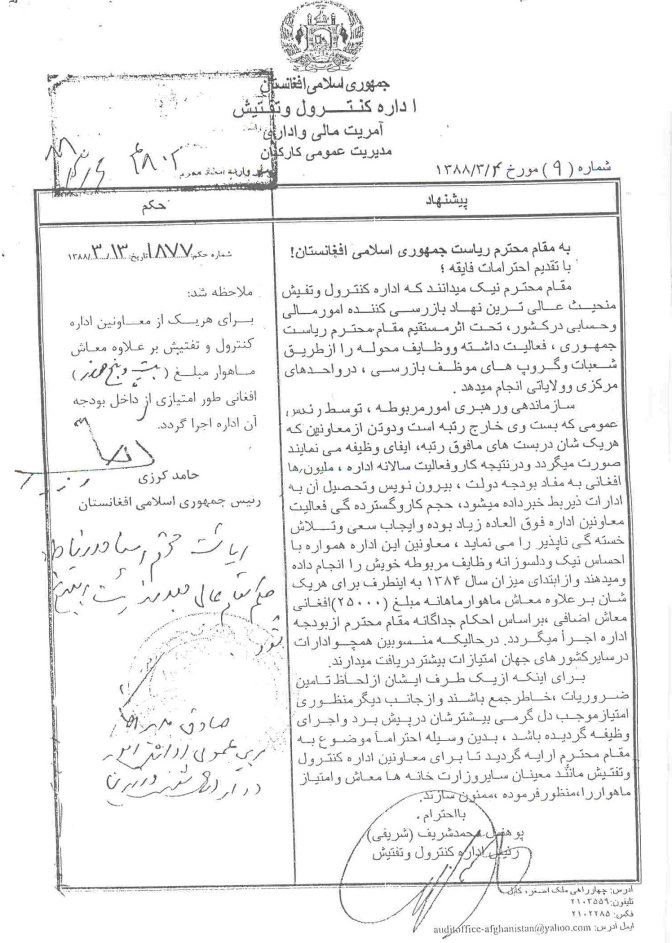 جمهوری اسلامی افغانستان
اداره کنترول وتفتیش
آمریت مالی واداری
مدیریت عمومی کارکنان
شماره (۹) مورخ ۱۳۸۸/۳/۴
پیشنهاد
به مقام محترم ریاست جمهوری اسلامی افغانستان!
با تقدیم احترامات فایقه ؛
مقام محترم نیک میدانند که اداره کنترول وتفتیش
منحیث عالی ترین نهاد بازرسی کننده امورمالی
وحسابی درکشور، تحت اثرمستقیم مقام محترم ریاست
جمهوری ، فعالیت داشته ووظایف محوله را ازطریق
شعبات وگروپ های موظف بازرسی ، درواحدهای
مرکزی وولایاتی انجام میدهد.
سازماندهی ورهبری امورمربوطه ، توسط رئیس
عمومی که بست وی خارج رتبه است ودوتن ازمعاونین که
هریک شان دربست های مافوق رتبه، ایفای وظیفه می نمایند
صورت میگردد ودرنتیجه کاروفعالیت سالانه اداره ، ملیون ها
افغانی به مفاد بودجه دولت ، بیرون نویس وتحصیل آن به
ادارات ذیربط خبرداده میشود، حجم کاروگسترده گی فعالیت
معاونین اداره فوق العاده زیاد بوده وایجاب سعی وتلاش
خسته گی ناپذیر را می نماید ، معاونین این اداره همواره با
احساس نیک ودلسوزانه وظایف مربوطه خویش را انجام داده
ومیدهند وازابتدای میزان سال ۱۳۸۴ به اینطرف برای هریک
شان بر علاوه معاش ماهوار ماهانه مبلغ (۲۵۰۰۰) افغانی
معاش اضافی ،براساس احکام جداگانه مقام محترم ازبودجه
اداره اجرأ میگردد. درحالیکه منسوبین همچو ادارات
درسایرکشور های جهان امتیازات بیشتردریافت میدارند.
برای اینکه ازیک طرف ایشان ازلحاظ تامین
ضروریات ،خاطرجمع باشند وازجانب دیگرمنظوری
امتیازموجب دل گرمی بیشترشان درپیش برد واجرای
وظیفه گردیده باشد ، بدین وسیله احتراماً موضوع به
مقام محترم ارایه گردید تا برای معاونین اداره کنترول
وتفتیش مانند معینان سایروزارت خانه ها معاش وامتیاز
ماهواررا،منظورفرموده ،ممنون سازند.
بااحترام.
پوهنمل محمدشریف (شریفی)
رئیس اداره کنترول وتفتیش
حکم
شماره حکم: ۱۸۷۷ تاریخ: ۱۳۸۸/۳/۱۳
ملاحظه شد:
برای هریک از معاونین اداره
کنترول و تفتیش بر علاوه معاش
ماهوار مبلغ (بیست وپنج هزار)
افغانی طور امتیازی از داخل بودجه
آن اداره اجرا گردد.
حامد کرزی
رئیس جمهوری اسلامی افغانستان
آدرس: چهارراهی ملک اصغر، کابل
تلیفون: ۲۱۰۳۵۵۹
فکس: ۲۱۰۲۲۸۵
ایمل آدرس: auditoffice-afghanistan@yahoo.com